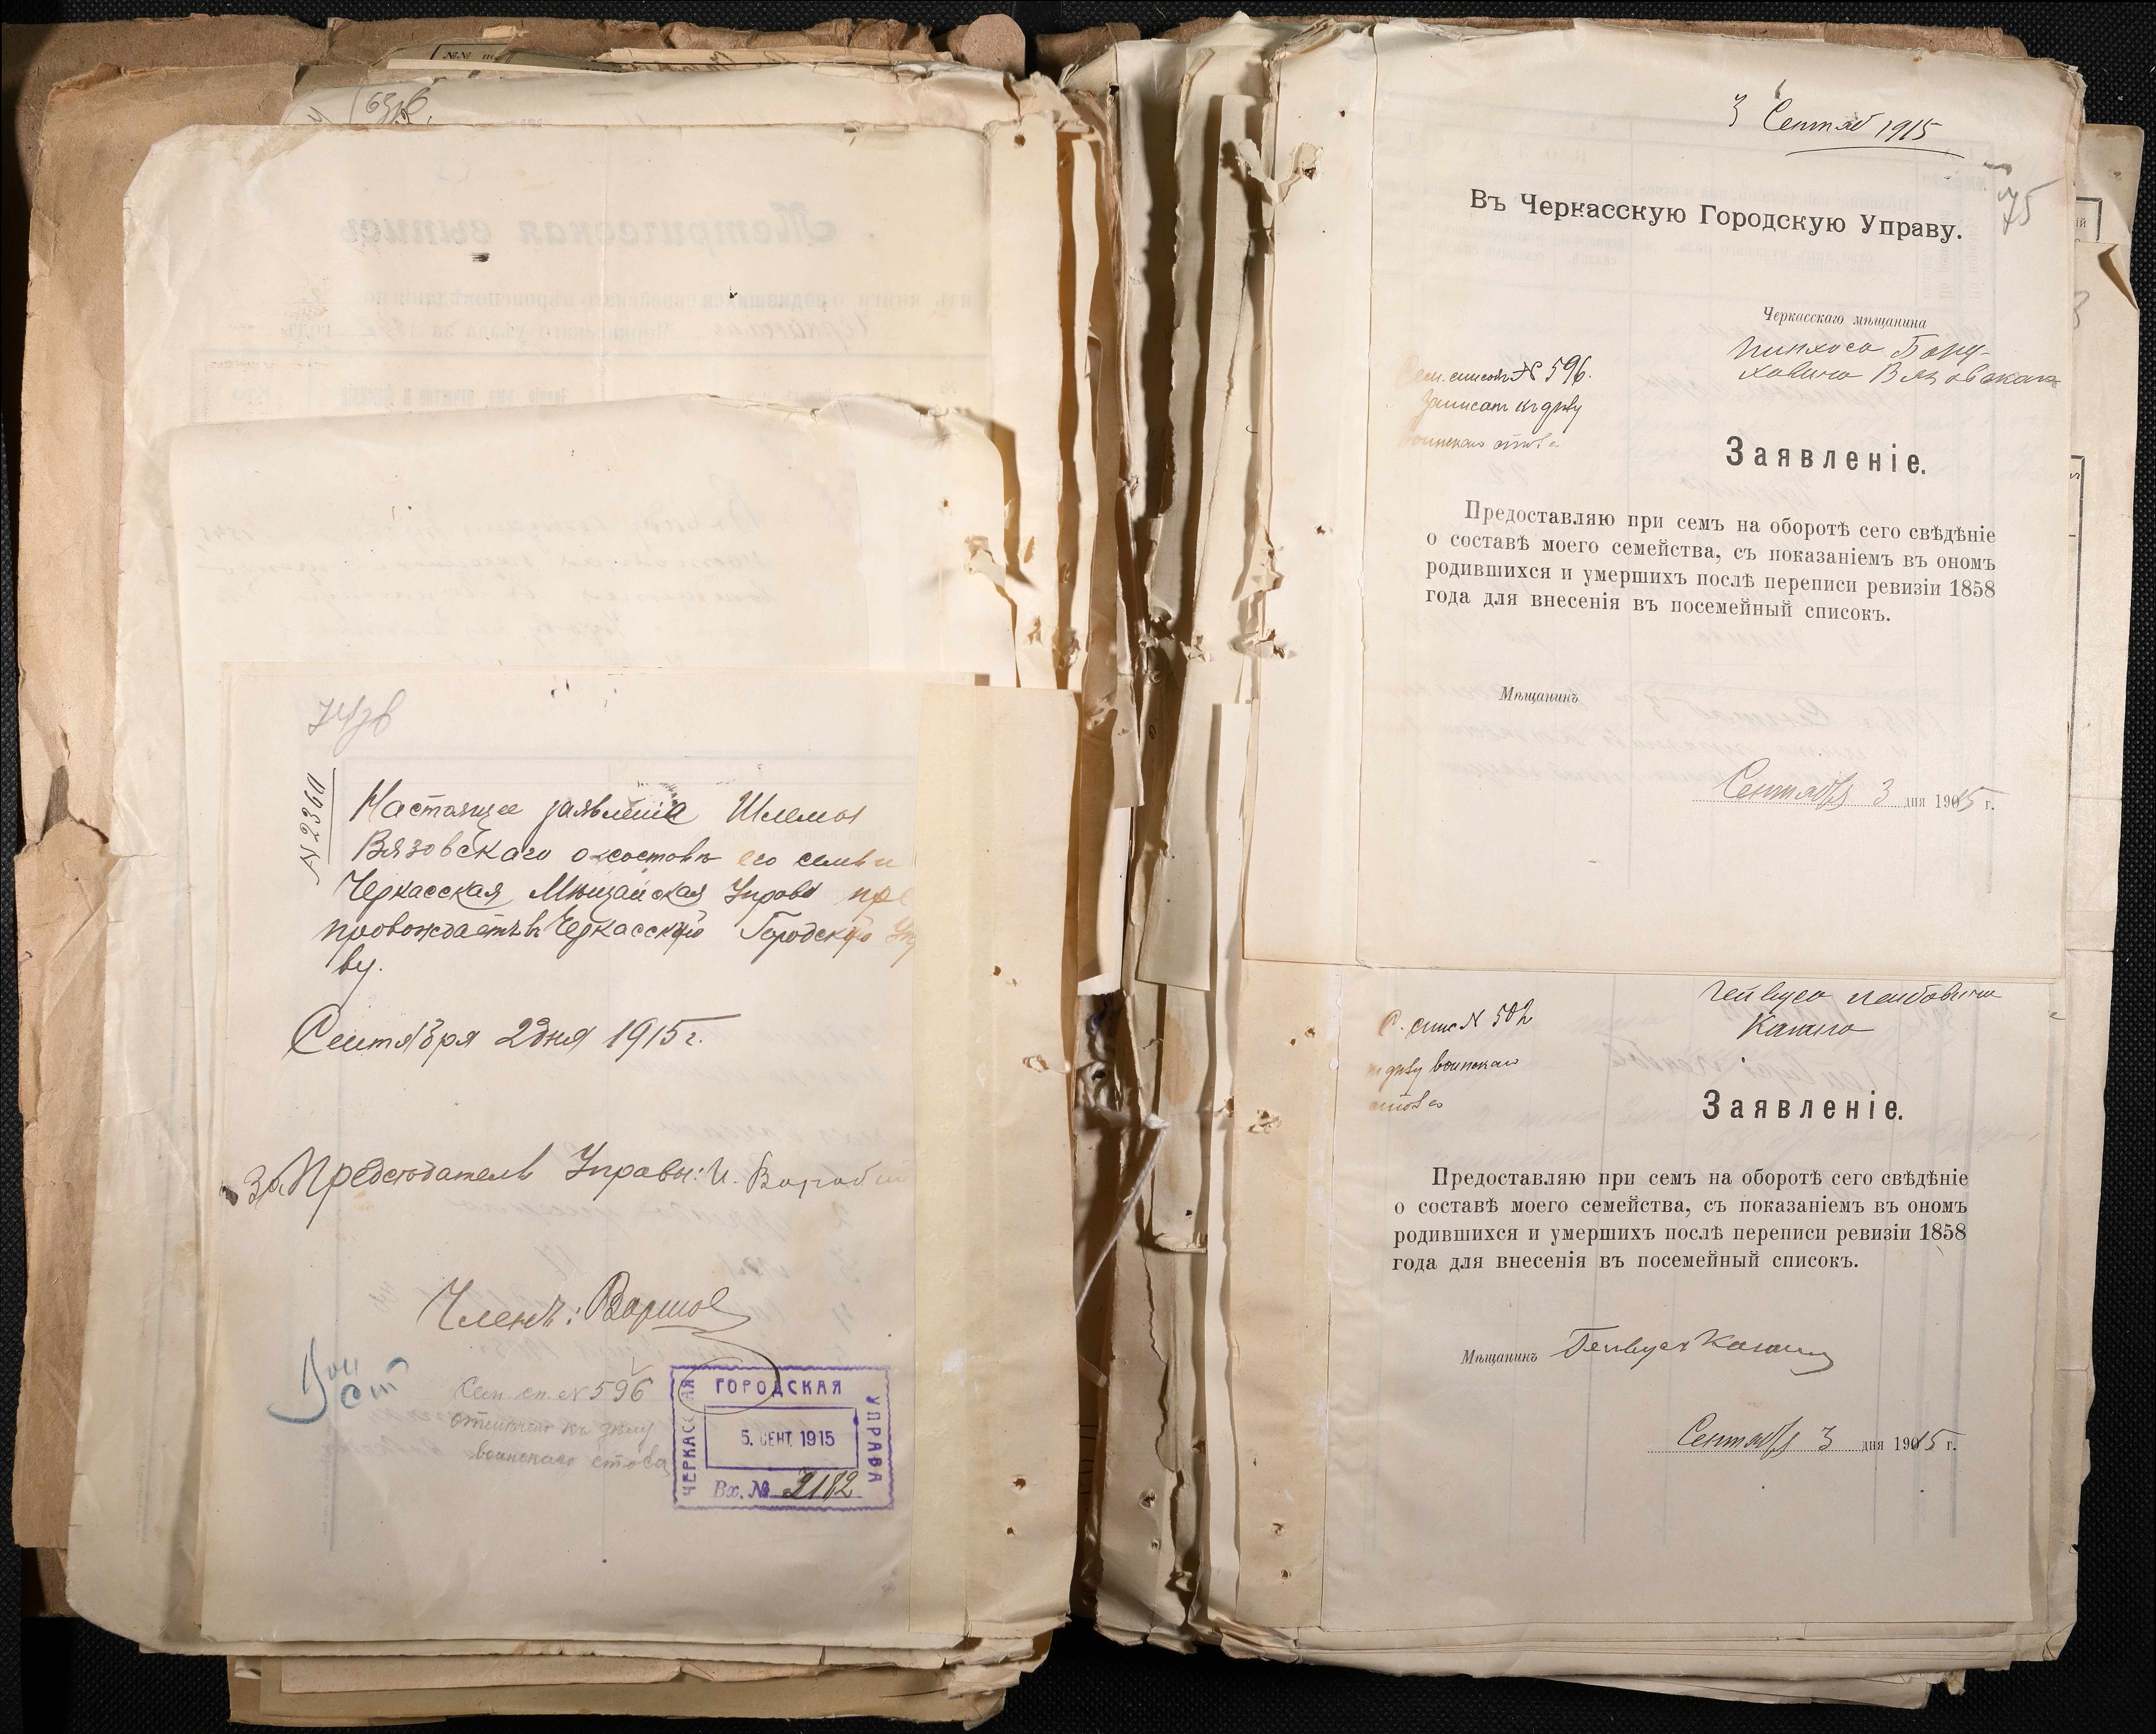 63 об.
74 об
N 2360
Настоящее заявленіе Шлемы
Вязовскаго о составѣ его семьи
Черкасская Мѣщанская Управа пре
провождаетъ въ Черкасскую Городскую Упр
ву.
Сентября 2 дня 1915 г.
За Предсѣдатель Управы: И.
Членъ:
Сем. сп. № 596
къ дѣлу
воинскаго стола
ЧЕРКАССКАЯ
ГОРОДСКАЯ
УПРАВА
5. СЕНТ. 1915
Вх. № 2182
3 Сентяб 1915
75
Въ Черкасскую Городскую Управу.
Черкасскаго мѣщанина
Пинхоса Бору-
ховича Вязовскаго
Сем. списокъ № 596.
Записат къ дѣлу
воинскаго стола
Заявленіе.
Предоставляю при семъ на оборотѣ сего свѣдѣніе
о составѣ моего семейства, съ показаніемъ въ ономъ
родившихся и умершихъ послѣ переписи ревизіи 1858
года для внесенія въ посемейный списокъ.
Мѣщанинъ
Сентября 3 дня 1915 г.
Лейбовича
С. спис N 502
къ дѣлу воинскаго
стола
Заявленіе.
Предоставляю при семъ на оборотѣ сего свѣдѣніе
о составѣ моего семейства, съ показаніемъ въ ономъ
родившихся и умершихъ послѣ переписи ревизіи 1858
года для внесенія въ посемейный списокъ.
Мѣщанинъ
Сентября 3 дня 1915 г.